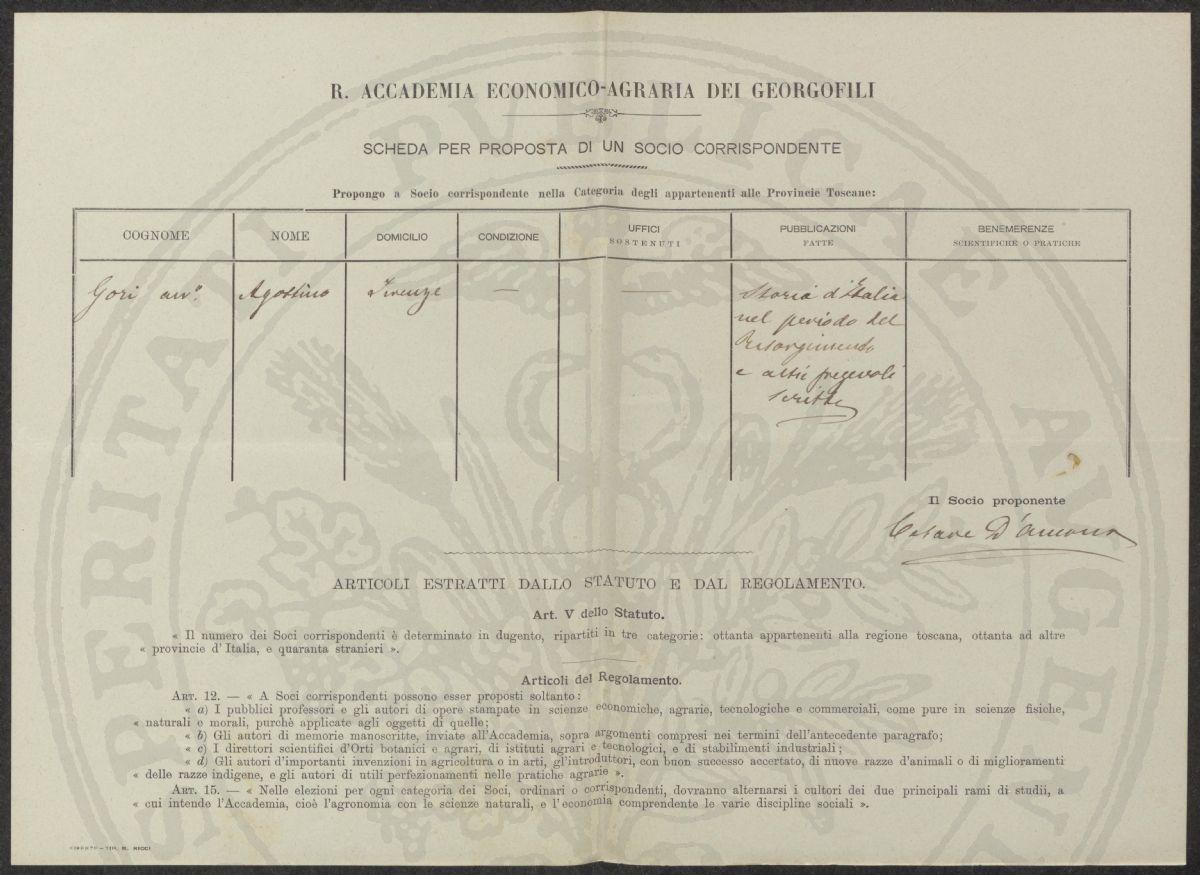 R. ACCADEMIA ECONOMICO-AGRARIA DEI GEORGOFILI
SCHEDA PER PROPOSTA DI UN SOCIO CORRISPONDENTE
Propongo a Socio corrispondente nella Categoria degli appartenenti alle Provincie Toscane:
COGNOME NOME DOMICILIO CONDIZIONE UFFICI SOSTENUTI PUBBLICAZIONI FATTE BENEMERENZE SCIENTIFICHE O PRATICHE
Gori avv.º Agostino Firenze — — Storia d'Italia
nel periodo del
Risorgimento
e altri pregevoli
scritti
Il Socio proponente
Cesare D'Ancona
ARTICOLI ESTRATTI DALLO STATUTO E DAL REGOLAMENTO.
Art. V dello Statuto.
« Il numero dei Soci corrispondenti è determinato in dugento, ripartiti in tre categorie: ottanta appartenenti alla regione toscana, ottanta ad altre
« provincie d'Italia, e quaranta stranieri ».
Articoli del Regolamento.
ART. 12. — « A Soci corrispondenti possono esser proposti soltanto:
« a) I pubblici professori e gli autori di opere stampate in scienze economiche, agrarie, tecnologiche e commerciali, come pure in scienze fisiche,
« naturali e morali, purchè applicate agli oggetti di quelle;
« b) Gli autori di memorie manoscritte, inviate all'Accademia, sopra argomenti compresi nei termini dell'antecedente paragrafo;
« c) I direttori scientifici d'Orti botanici e agrari, di istituti agrari e tecnologici, e di stabilimenti industriali;
« d) Gli autori d'importanti invenzioni in agricoltura o in arti, gl'introduttori, con buon successo accertato, di nuove razze d'animali o di miglioramenti
« delle razze indigene, e gli autori di utili perfezionamenti nelle pratiche agrarie ».
ART. 15. — « Nelle elezioni per ogni categoria dei Soci, ordinari o corrispondenti, dovranno alternarsi i cultori dei due principali rami di studii, a
« cui intende l'Accademia, cioè l'agronomia con le scienze naturali, e l'economia comprendente le varie discipline sociali ».
FIRENZE — TIP. M. RICCI
PROSPERITATI PUBLICAE AUGENDAE